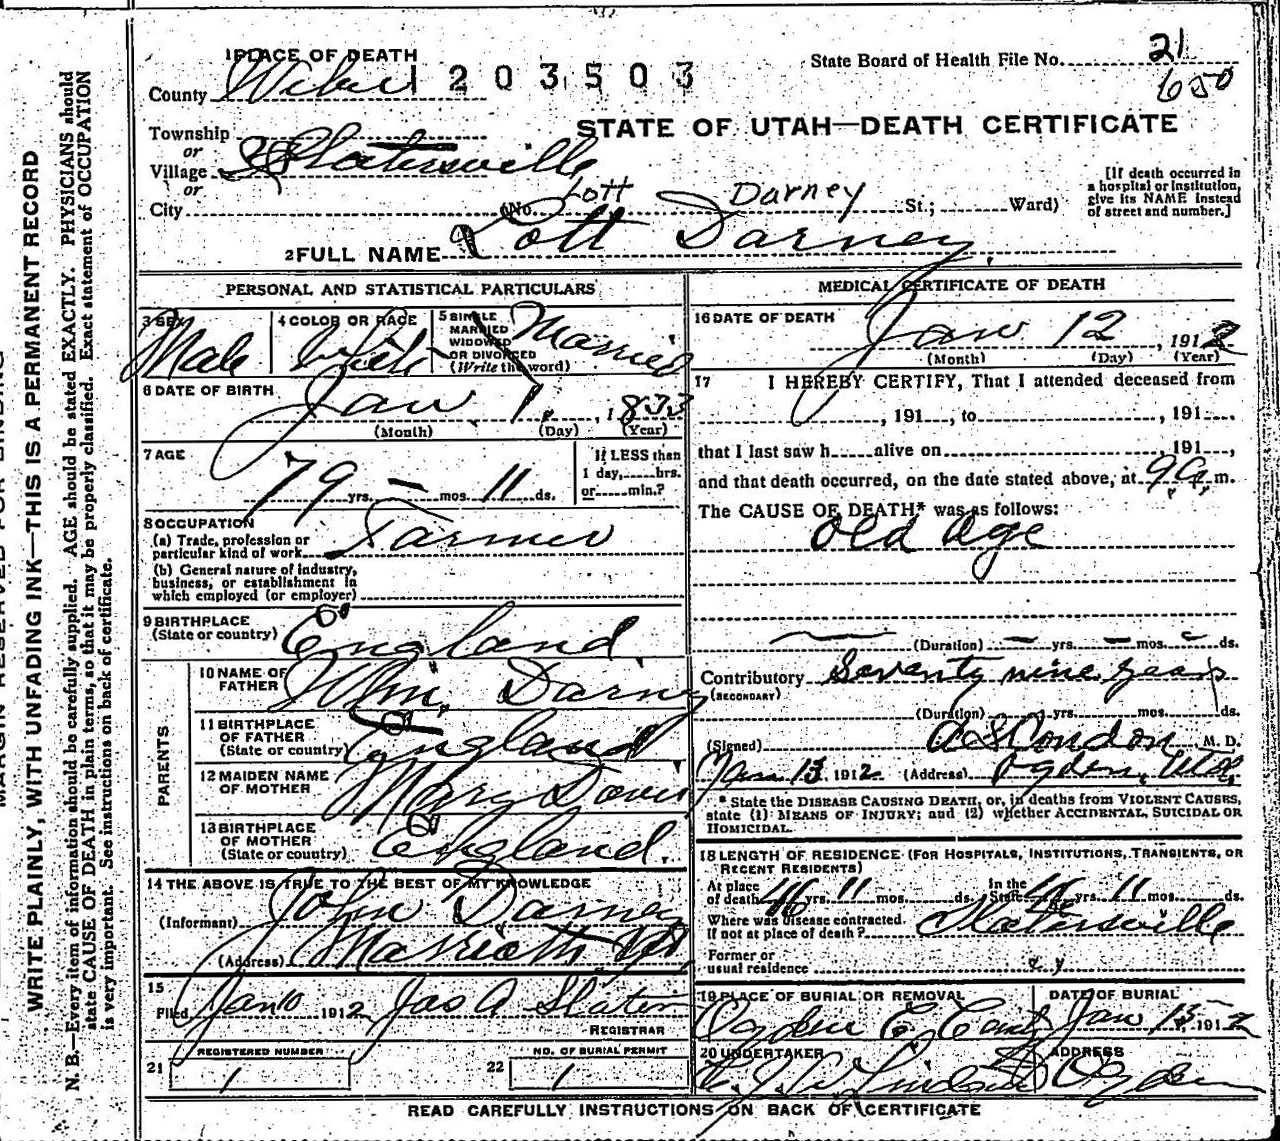 1 PLACE OF DEATH
County Weber
1203503
State Board of Health File No. 21
650
STATE OF UTAH—DEATH CERTIFICATE
Township
or
Village Slatersville
or
City (No. St.; Ward)
Lott Darney
[If death occurred in
a hospital or institution,
give its NAME instead
of street and number.]
2 FULL NAME Lott Darney
PERSONAL AND STATISTICAL PARTICULARS
3 SEX
Male
4 COLOR OR RACE
White
5 SINGLE
MARRIED
WIDOWED
OR DIVORCED
(Write the word)
Married
6 DATE OF BIRTH
Jan 1, 1833
(Month) (Day) (Year)
7 AGE
79 yrs. — mos. 11 ds.
If LESS than
1 day, hrs.
or min.?
8 OCCUPATION
(a) Trade, profession or
particular kind of work Farmer
(b) General nature of industry,
business, or establishment in
which employed (or employer)
9 BIRTHPLACE
(State or country) England
PARENTS
10 NAME OF
FATHER Wm. Darney
11 BIRTHPLACE
OF FATHER
(State or country) England
12 MAIDEN NAME
OF MOTHER Mary Davis
13 BIRTHPLACE
OF MOTHER
(State or country) England.
14 THE ABOVE IS TRUE TO THE BEST OF MY KNOWLEDGE
(Informant) John Darney
(Address) Marriott Ut
15
Filed Jan 10 1912 Jas A Slater
REGISTRAR
21 REGISTERED NUMBER
1
22 NO. OF BURIAL PERMIT
1
MEDICAL CERTIFICATE OF DEATH
16 DATE OF DEATH
Jan 12, 1912
(Month) (Day) (Year)
17 I HEREBY CERTIFY, That I attended deceased from
, 191 , to , 191
that I last saw h alive on , 191 ,
and that death occurred, on the date stated above, at 9 a. m.
The CAUSE OF DEATH* was as follows:
Old Age
(Duration) — yrs. — mos. — ds.
Contributory Seventy nine years
(SECONDARY)
(Duration) yrs. mos. ds.
(Signed) A S Condon M. D.
Jan 13 1912 (Address) Ogden, Utah
* State the DISEASE CAUSING DEATH, or, in deaths from VIOLENT CAUSES,
state (1) MEANS OF INJURY; and (2) whether ACCIDENTAL, SUICIDAL OR
HOMICIDAL.
18 LENGTH OF RESIDENCE (FOR HOSPITALS, INSTITUTIONS, TRANSIENTS, OR
RECENT RESIDENTS)
At place
of death 46 yrs. 11 mos. ds. In the
State 46 yrs. 11 mos. ds.
Where was disease contracted
if not at place of death? Slatersville
Former or
usual residence
19 PLACE OF BURIAL OR REMOVAL
Ogden
DATE OF BURIAL
Jan 15 1912
20 UNDERTAKER
ADDRESS
Ogden
READ CAREFULLY INSTRUCTIONS ON BACK OF CERTIFICATE
WRITE PLAINLY, WITH UNFADING INK—THIS IS A PERMANENT RECORD
N. B.—Every item of information should be carefully supplied. AGE should be stated EXACTLY. PHYSICIANS should
state CAUSE OF DEATH in plain terms, so that it may be properly classified. Exact statement of OCCUPATION
is very important. See instructions on back of certificate.